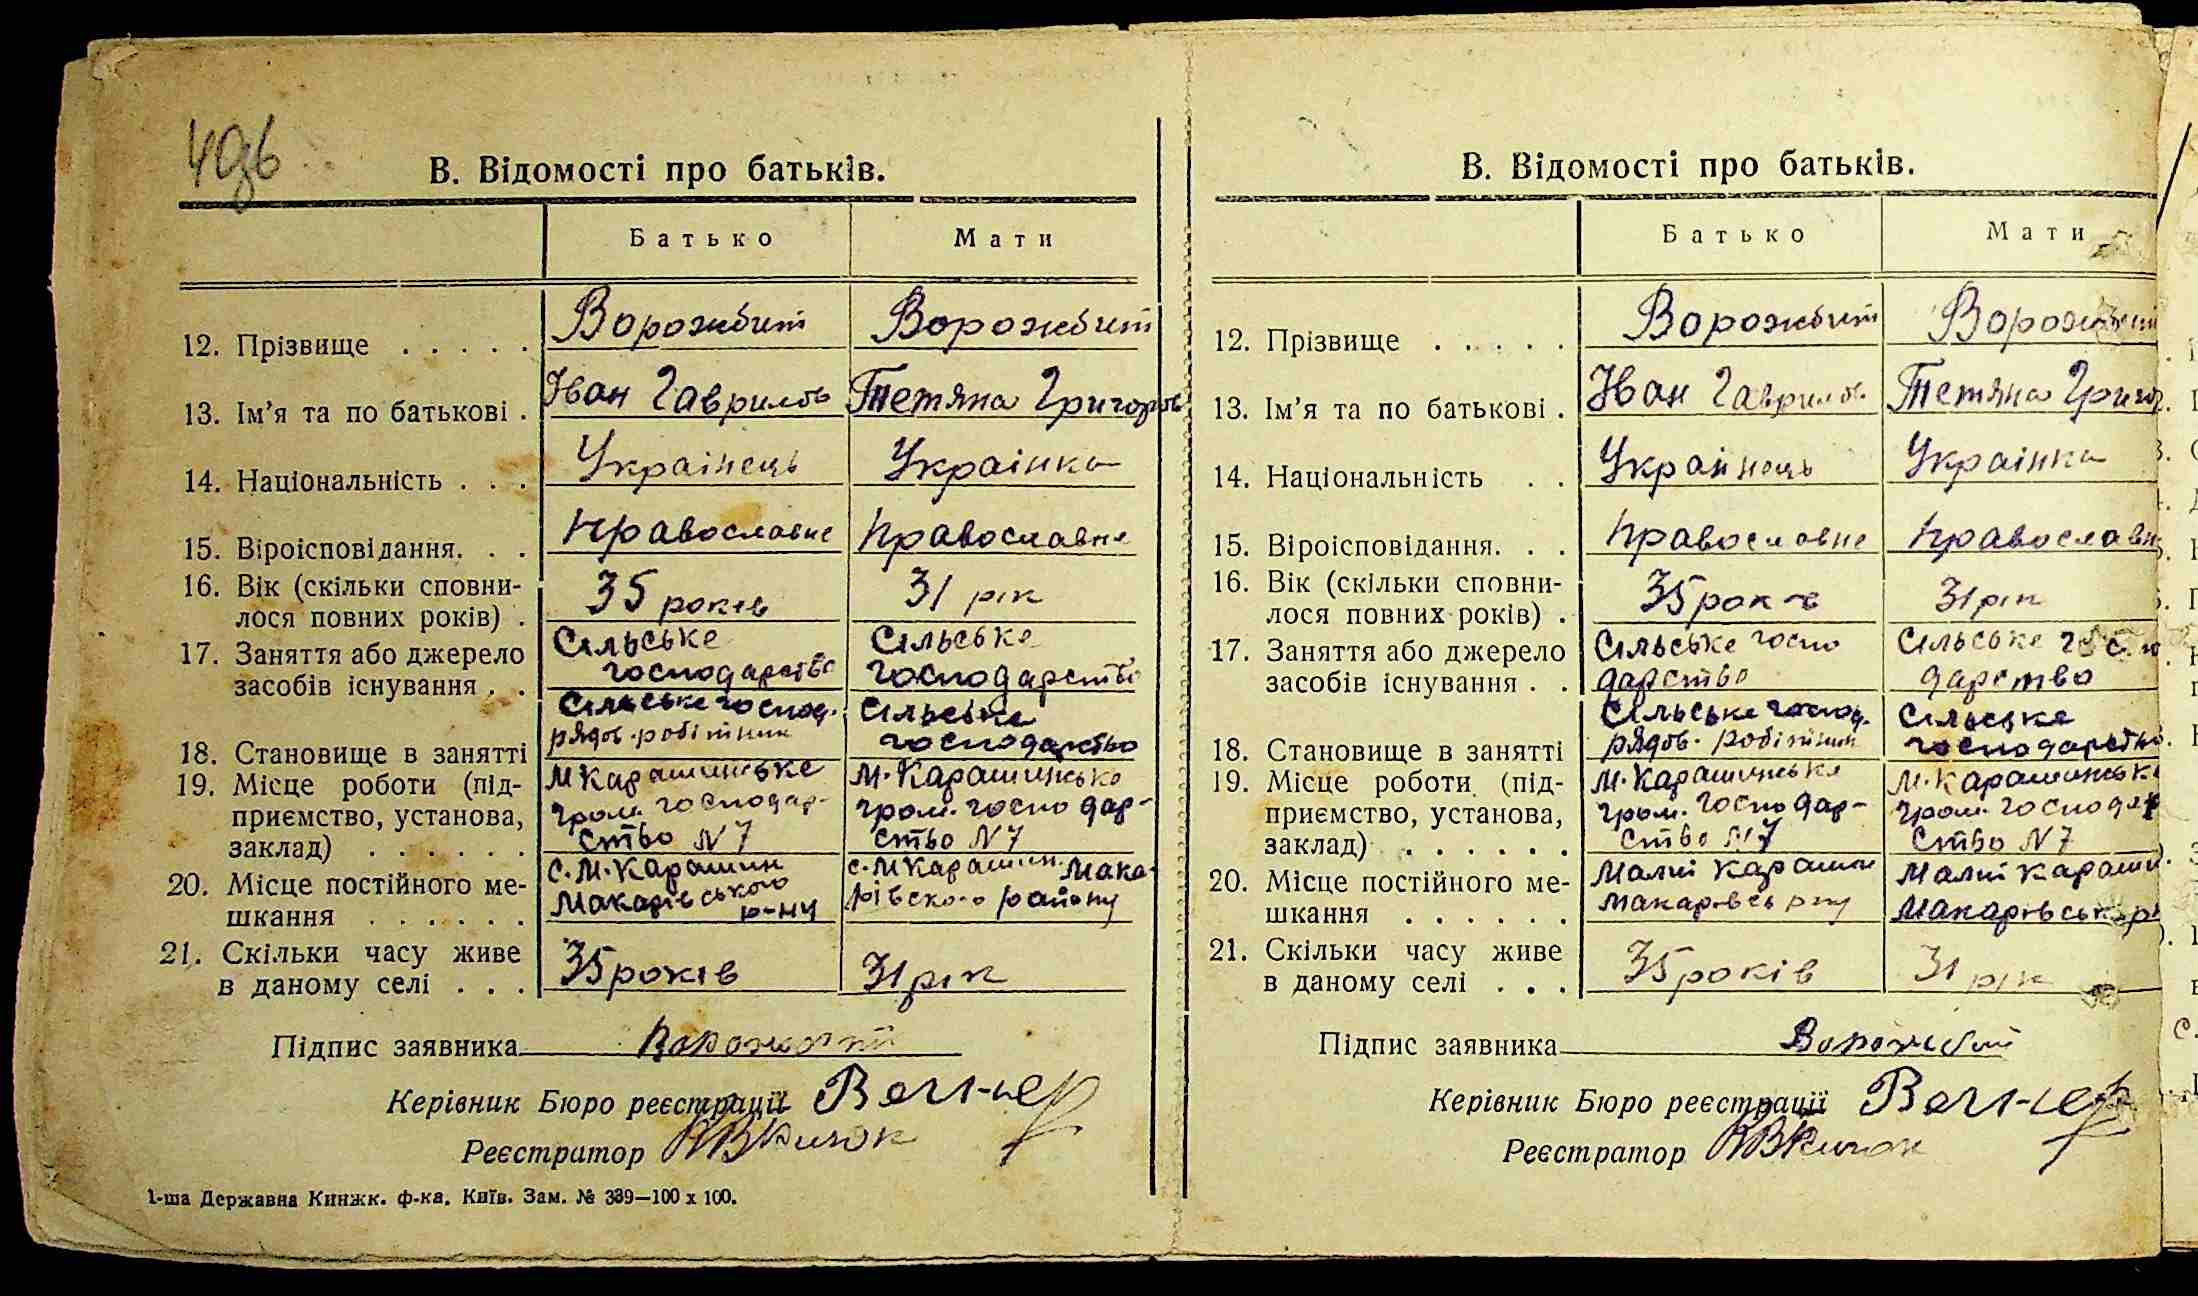 В. Відомості про батьків.
Батько Мати
12. Прізвище . . . . . Ворожбит Ворожбит
13. Ім'я та по батькові . Іван Гаврилов Тетяна Григоров
14. Національність . . . Українець Українка
15. Віроісповідання. . . Православне Православне
16. Вік (скільки сповни-
лося повних років) . 35 років 31 рік
17. Заняття або джерело Сільське Сільське
засобів існування . . господарство господарство
Сільське господ. Сільське
18. Становище в занятті рядов. робітник господарство
19. Місце роботи (під- М Карашинське М. Карашинське
приємство, установа, гром. господар- гром. господар-
заклад) . . . . . . ство N 7 ство N 7
20. Місце постійного ме- с. М. Карашин с. М Карашин Мака-
шкання . . . . . . Макарівського р-ну рівского району
21. Скільки часу живе
в даному селі . . . 35 років 31 рік
Підпис заявника
Керівник Бюро реєстрації
Реєстратор
1-ша Державна Книжк. ф-ка. Київ. Зам. № 339—100 х 100.
В. Відомості про батьків.
Батько Мати
12. Прізвище . . . . . Ворожбит Ворожбит
13. Ім'я та по батькові . Іван Гаврилов Тетяна Григор
14. Національність . . Українець Українка
15. Віроісповідання. . . Православне Православн
16. Вік (скільки сповни-
лося повних років) . 35 років 31 рік
17. Заняття або джерело Сільське госпо Сільське госпо
засобів існування . . дарство дарство
Сільське господ. Сільське
18. Становище в занятті рядов. робітник господарство
19. Місце роботи (під- М. Карашинське М. Карашинськ
приємство, установа, гром. господар- гром. господар
заклад) . . . . . . ство N 7 ство N 7
20. Місце постійного ме- Малий Карашин Малий Караши
шкання . . . . . . Макарівськ р-ну Макарівськ р
21. Скільки часу живе
в даному селі . . . 35 років 31 рік
Підпис заявника Ворожбит
Керівник Бюро реєстрації
Реєстратор